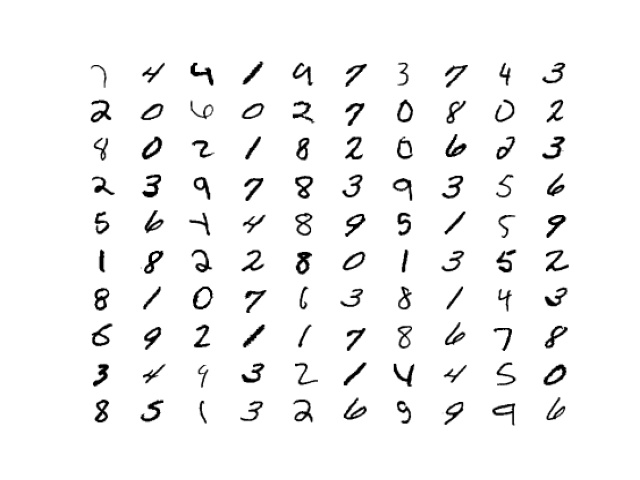 7 4 4 1 9 7 3 7 4 3
2 0 6 0 2 7 0 8 0 2
8 0 2 1 8 2 0 6 2 3
2 3 9 7 8 3 9 3 5 6
5 6 7 4 8 9 5 1 5 9
1 8 2 2 8 0 1 3 5 2
8 1 0 7 6 3 8 1 4 3
6 9 2 1 1 7 8 6 7 8
3 4 9 3 2 1 4 4 5 0
8 5 1 3 2 6 9 9 9 6